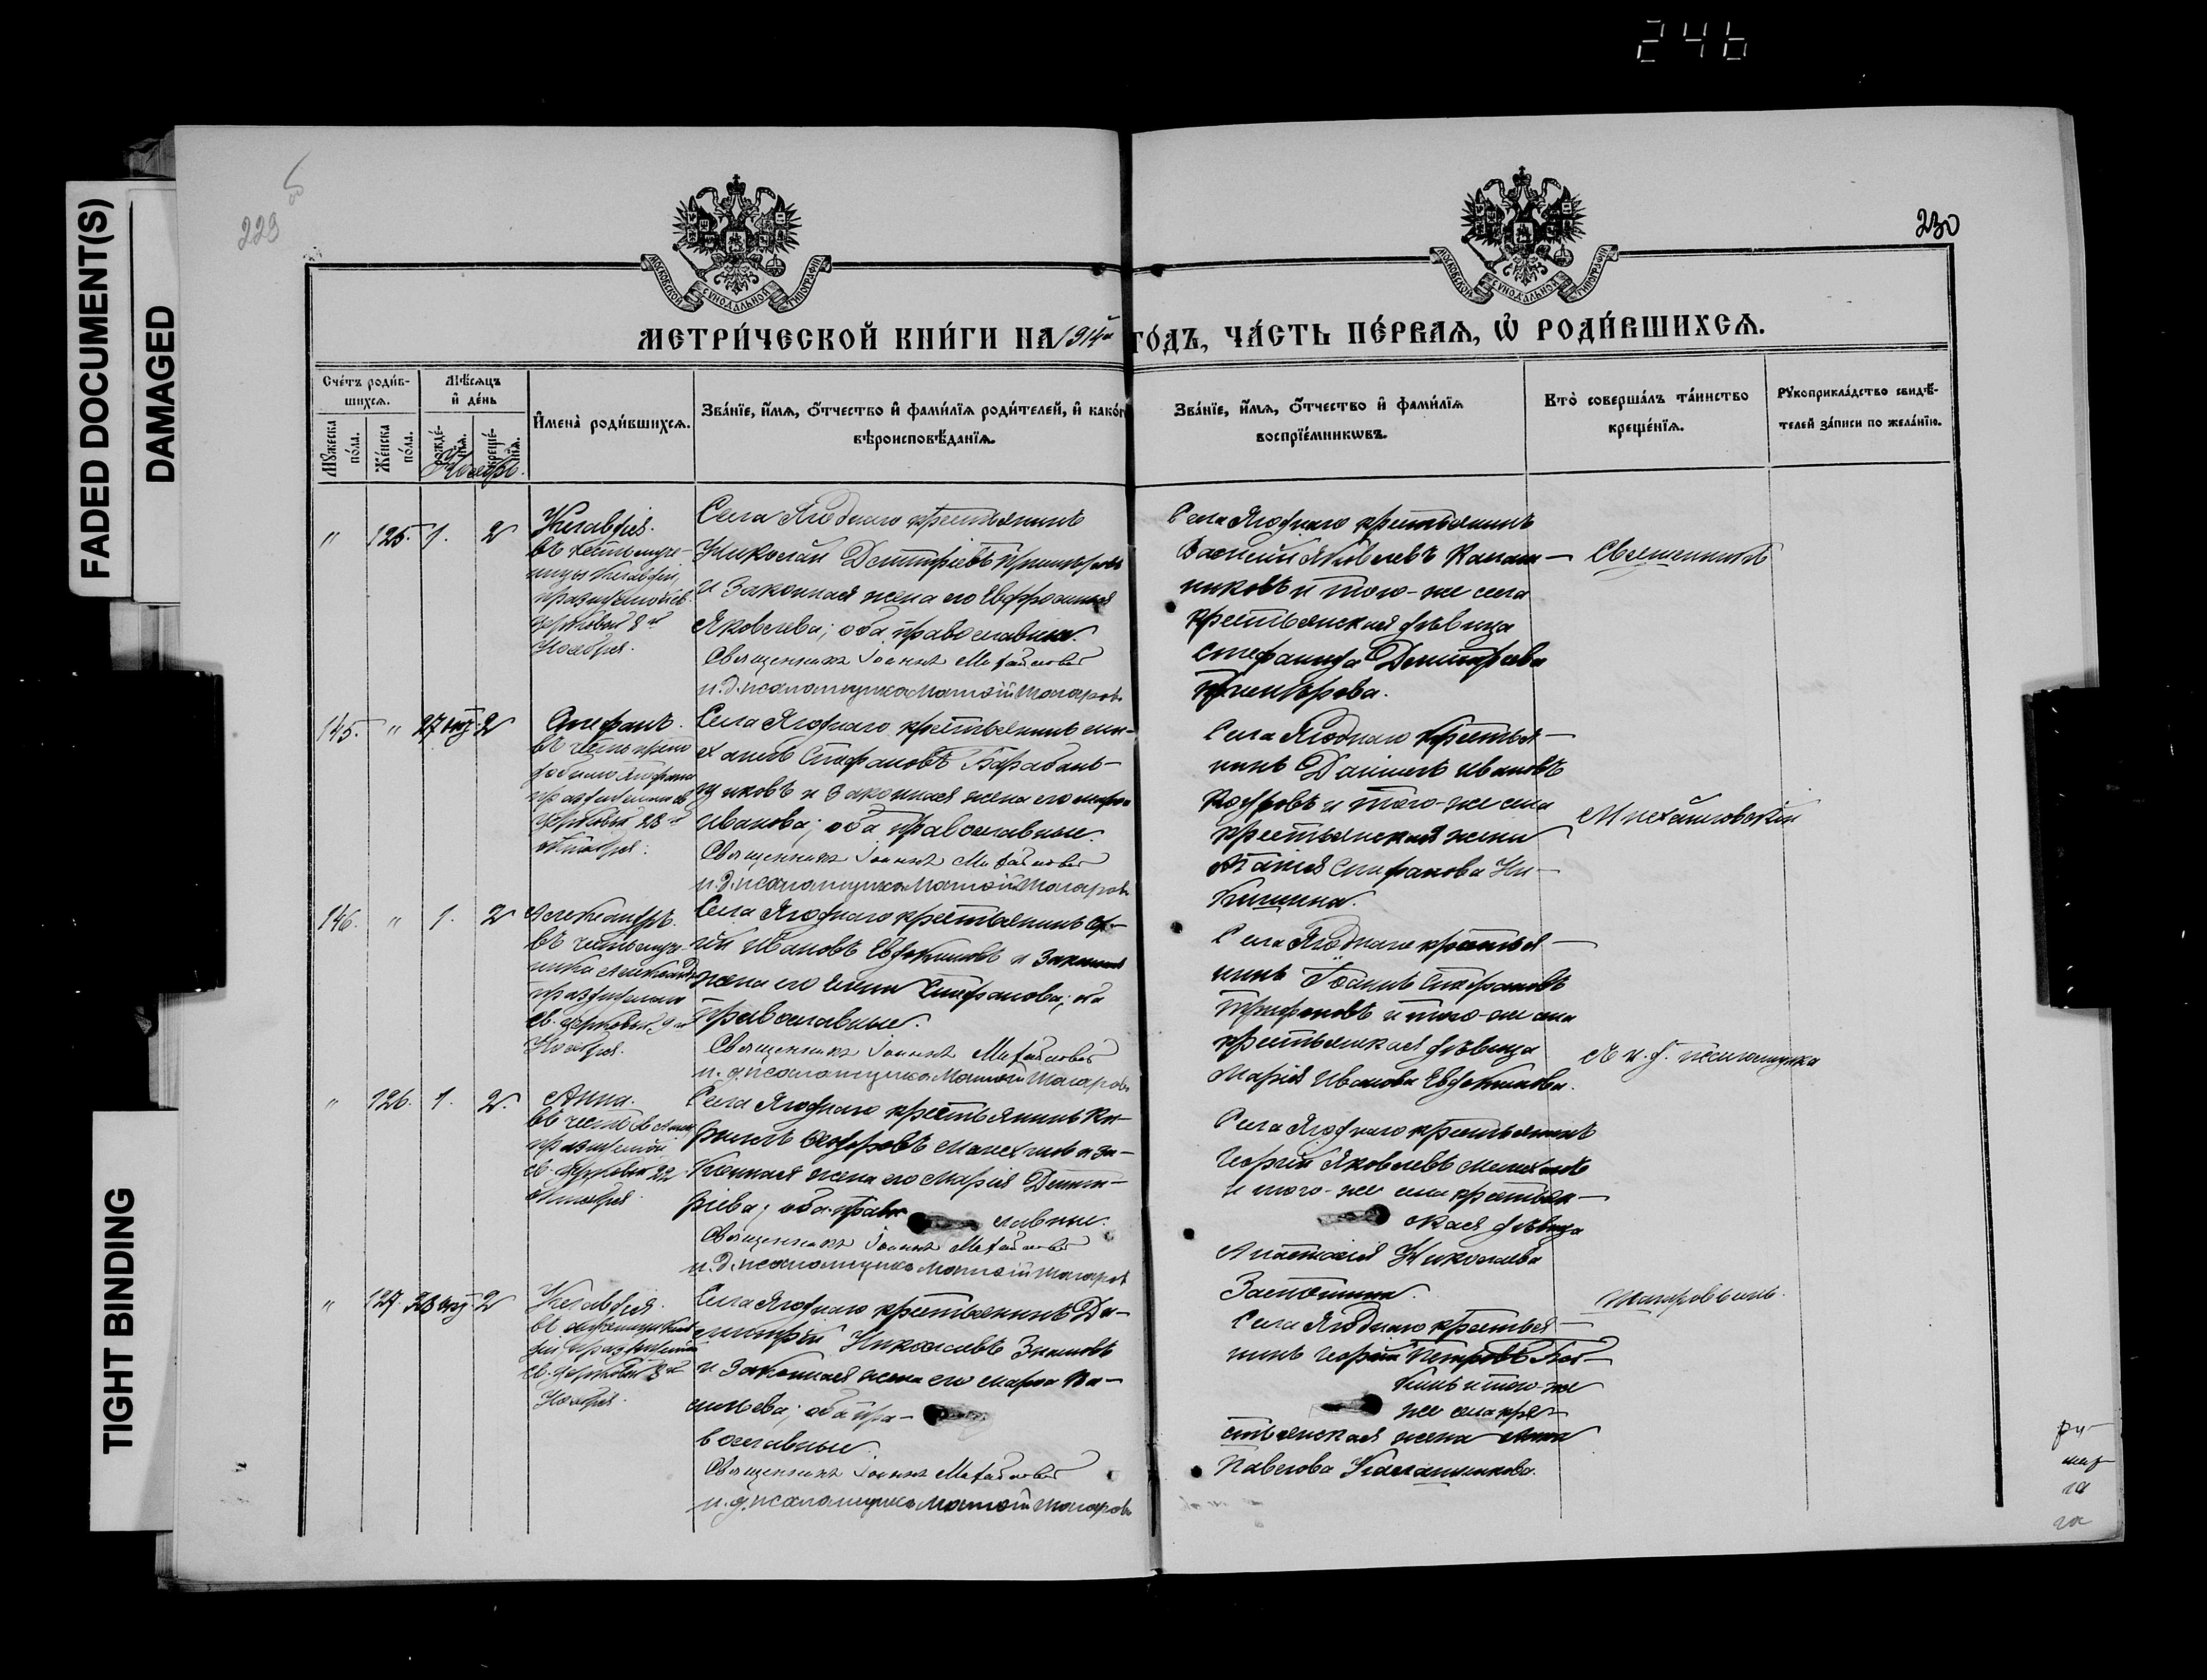 246
FADED DOCUMENT(S)
DAMAGED
TIGHT BINDING
229
об
230
МОСКОВСКОЙ СѴНОДАЛЬНОЙ ТИПОГРАФІИ
МОСКОВСКОЙ СѴНОДАЛЬНОЙ ТИПОГРАФІИ
МЕТРИ́ЧЕСКОЙ КНИ́ГИ НА 1914й ГО́ДЪ, ЧА́СТЬ ПЕ́РВАЯ, Ѡ҆ РОДИ́ВШИХСЯ.
Сче́тъ роди́в-
шихся.
Мꙋ́жеска по́ла.
Же́нска по́ла.
Мѣ́сяцъ
и҆ де́нь
рожде́-нїя.
креще́-нїя.
Ноябрь.
И҆мена̀ роди́вшихся.
Зва́нїе, и҆́мя, ѻ҆́тчество и҆ фами́лїя роди́телей, и҆ како́гѡ
вѣроисповѣ́данїя.
Зва́нїе, и҆́мя, ѻ҆́тчество и҆ фами́лїя
воспрїе́мникѡвъ.
Кто̀ соверша́лъ та́инство
креще́нїя.
Рꙋкоприкла́дство свидѣ́-
телей за́писи по жела́нїю.
" 125. 1. 2
Клавдія.
въ честь муче-
ницы Клавдіи,
празднуемой св.
церковью
Ноября.
Села Ягоднаго крестьянинъ
Николай Дмитріевъ
и законная жена его Евфросинія
Яковлева; оба православные.
Священникъ Іоаннъ Михайловскій
и. д. псаломщика Матѳій Шагаровъ
Села Ягоднаго крестьянинъ
Василій Яковлевъ Калаш-
никовъ и того-же села
крестьянская дѣвица
Стефанида Дмитріева
Священникъ
145. " 27 окт. 2
Стефанъ.
въ честь препо
добнаго Стефана
празднуемаго св.
церковью 28го
октября.
Села Ягоднаго крестьянинъ Ми-
хаилъ Стефановъ Барабан-
щиковъ и законная жена его
Иванова; оба православные.
Священникъ Іоаннъ Михайловскій
и. д. псаломщика Матѳій Шагаровъ
Села Ягоднаго крестья-
нинъ Даніилъ Ивановъ
и того-же села
крестьянская жена
Стефанова Ни-
кишина.
Михайловскій
146. " 1. 2
Александръ.
въ честь муче-
ника Александра
празднуемаго
св. церковью 9го
Ноября.
Села Ягоднаго крестьянинъ
Ивановъ Евдокимовъ и законная
жена его Стефанова; оба
православные.
Священникъ Іоаннъ Михайловскій
и. д. псаломщика Матѳій Шагаровъ
Села Ягоднаго крестья-
нинъ Іоаннъ Стефановъ
Трифоновъ и того-же села
крестьянская дѣвица
Марія Иванова Евдокимова.
и. д. псаломщика
" 126. 1. 2.
Анна.
въ честь св. Анны
празднуемой
св. церковью 22
октября.
Села Ягоднаго крестьянинъ Ки-
риллъ Ѳедоровъ Малехинъ и за-
конная жена его Марія Дмит-
ріева; оба право славные.
Священникъ Іоаннъ Михайловскій
и. д. псаломщика Матѳій Шагаровъ
Села Ягоднаго крестьянинъ
Георгій Яковлевъ Малехинъ
и того-же села крестьян-
ская дѣвица
Анастасія Николаева
" 127. 28 окт. 2
Клавдія.
въ мученицы Клав
діи празднуемой
св. церковью
Ноября.
Села Ягоднаго крестьянинъ Ди-
митрій Николаевъ Зиновъ
и законная жена его Марѳа Ва-
сильева; оба пра-
вославные.
Священникъ Іоаннъ Михайловскій
и. д. псаломщика Матѳій Шагаровъ
Села Ягоднаго крестья-
нинъ Георгій Петровъ
и того-же
же села кре-
стьянская жена Анна
Павлова Калашникова.
Шагаровъ